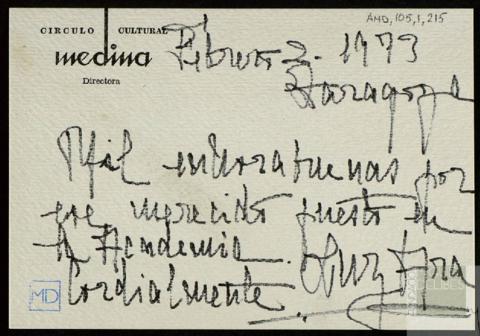 AMD, 105, 1, 215
CIRCULO CULTURAL
medina
Directora
Febrero 2. 1973
Zaragoza
Mil enhorabuenas por
ese merecido puesto en
la Academia.
Cordialmente.
MD
DELIBES